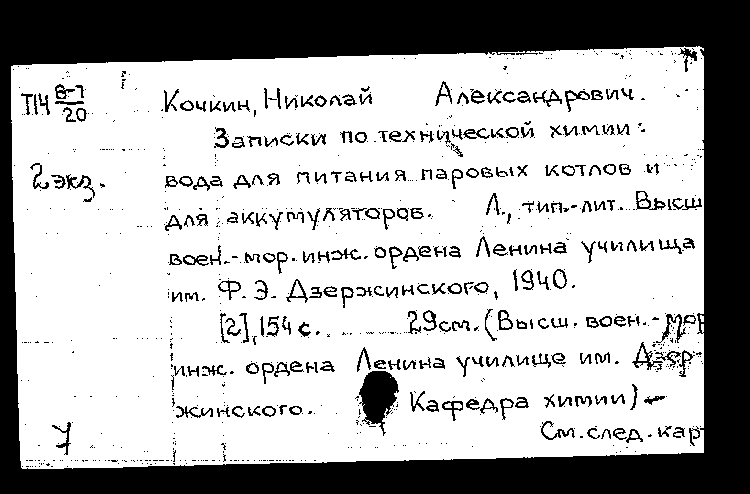 Т14 В-7/20
Кочкин, Николай Александрович.
Записки по технической химии:
2 экз.
вода для питания паровых котлов и
для аккумуляторов. Л., тип.-лит. Высш
воен.-мор. инж. ордена Ленина училища
им. Ф. Э. Дзержинского, 1940.
[2], 154 с. 29 см. (Высш. воен.-мор
инж. ордена Ленина училище им. Дзер-
жинского. Кафедра химии)
7
См. след. кар